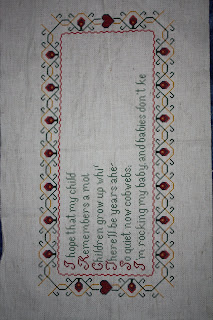 I hope that my child
Remembers a mot
Children grow up whi
There'll be years ahe
So quiet now cobwebs
I'm rocking my baby and babies don't ke